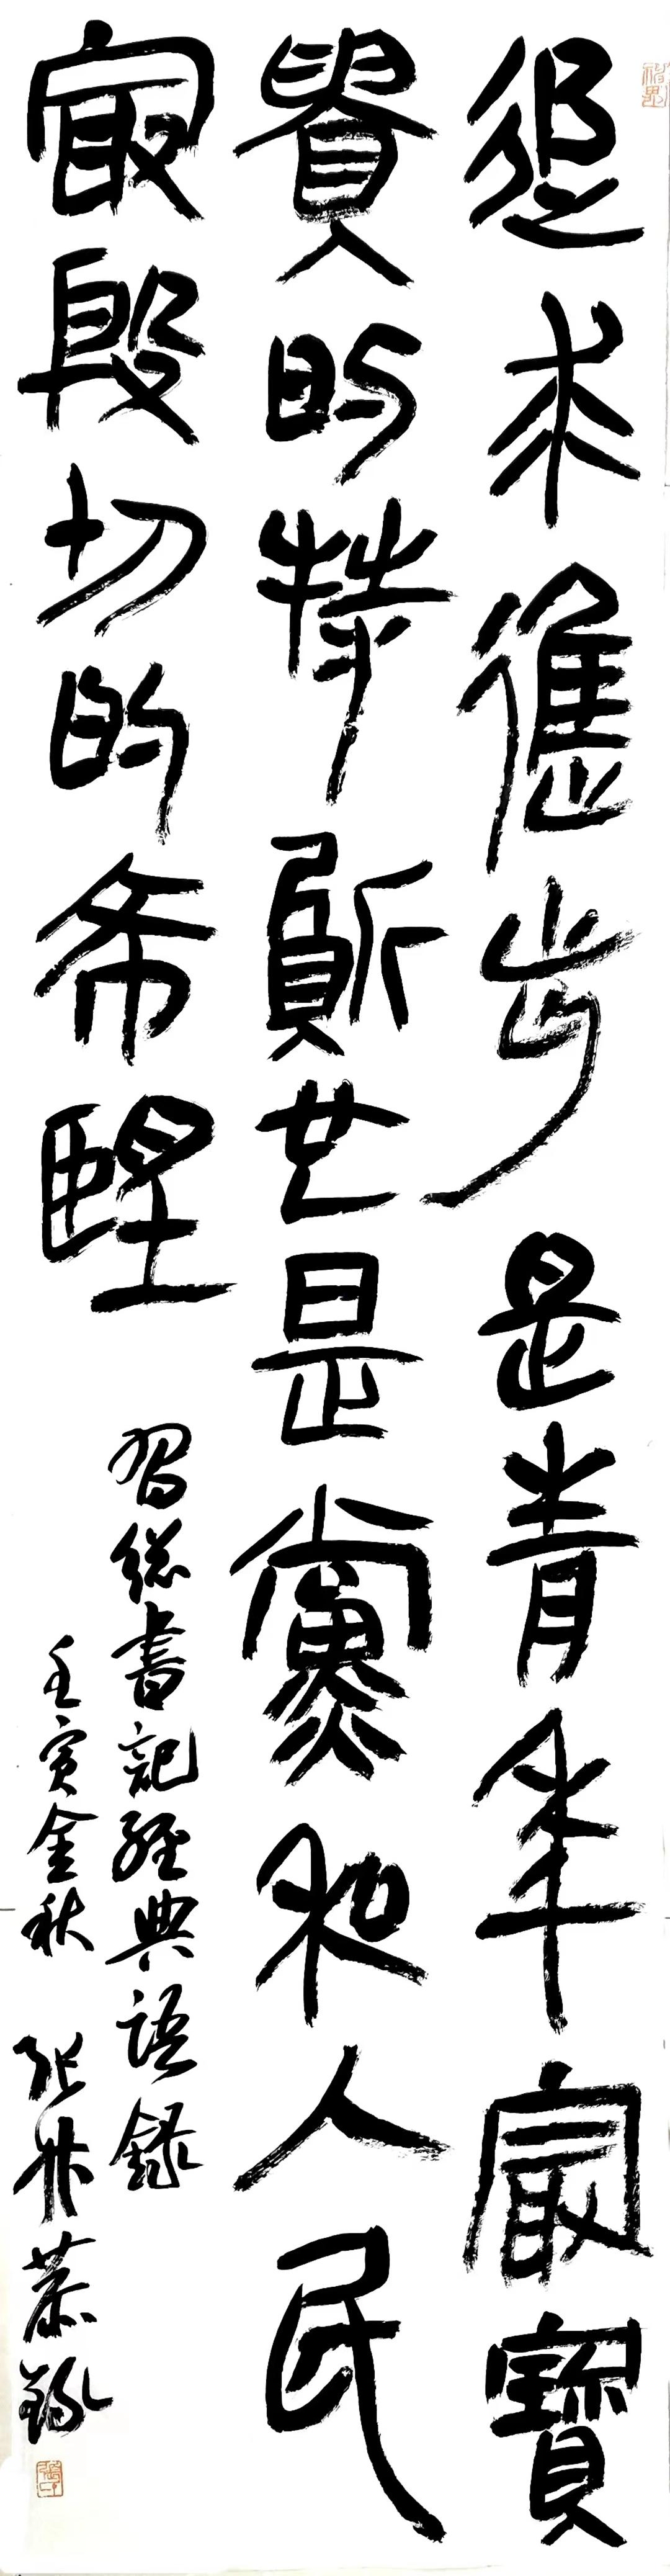 追求進步是青年冣寶
貴的特質也是黨和人民
冣殷切的希朢
習總書記經典語錄
壬寅金秋 張升恭錄